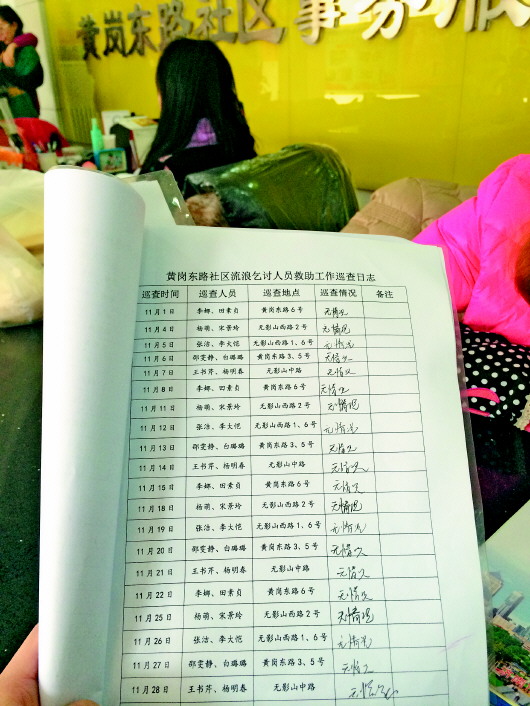 黄岗东路社区 事务服
黄岗东路社区流浪乞讨人员救助工作巡查日志
巡查时间 巡查人员 巡查地点 巡查情况 备注
11月1日 李娜、田素贞 黄岗东路6号 无情况
11月4日 杨萌、宋景玲 无影山西路2号 无情况
11月5日 张洁、李大恺 无影山西路1、6号 无情况
11月6日 邵雯静、白璐璐 黄岗东路3、5号 无情况
11月7日 王书芹、杨明春 无影山中路 无情况
11月8日 李娜、田素贞 黄岗东路6号 无情况
11月11日 杨萌、宋景玲 无影山西路2号 无情况
11月12日 张洁、李大恺 无影山西路1、6号 无情况
11月13日 邵雯静、白璐璐 黄岗东路3、5号 无情况
11月14日 王书芹、杨明春 无影山中路 无情况
11月15日 李娜、田素贞 黄岗东路6号 无情况
11月18日 杨萌、宋景玲 无影山西路2号 无情况
11月19日 张洁、李大恺 无影山西路1、6号 无情况
11月20日 邵雯静、白璐璐 黄岗东路3、5号 无情况
11月21日 王书芹、杨明春 无影山中路 无情况
11月22日 李娜、田素贞 黄岗东路6号 无情况
11月25日 杨萌、宋景玲 无影山西路2号 无情况
11月26日 张洁、李大恺 无影山西路1、6号 无情况
11月27日 邵雯静、白璐璐 黄岗东路3、5号 无情况
11月28日 王书芹、杨明春 无影山中路 无情况